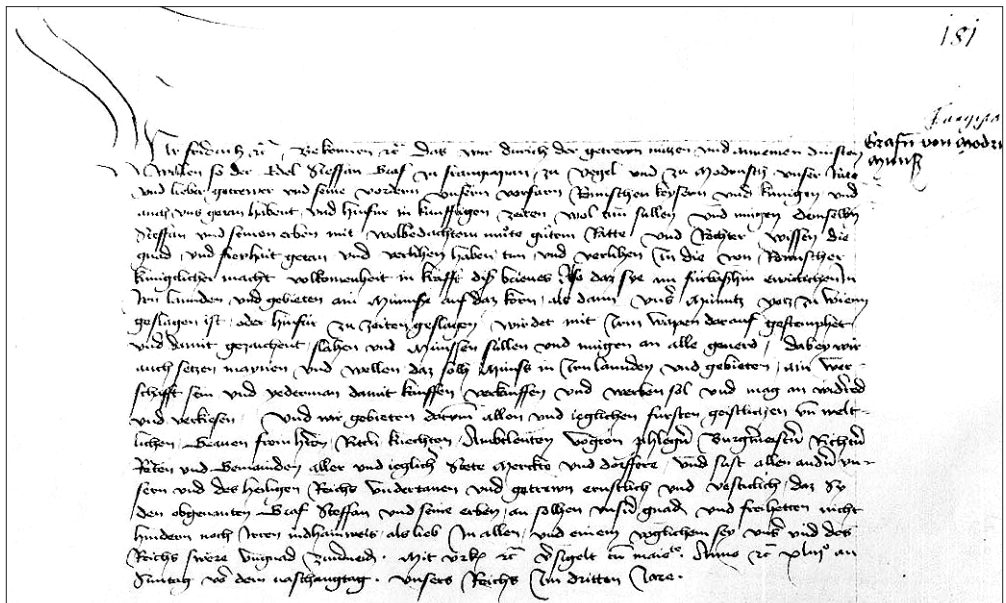 181
Grafn von Modru
Munß
Wir fridrich etc. Bekennen etc. Das wir durch der getrewen nutzen und annemen dinst
willen so der Edel Steffan Graf zu frangepan zu Vegel und zu Modrusch unser
und lieber getrewer und seine vordern unsern vorfarn Romischen keysern und kunigen und
auch uns getan habent und hinfur in kunfftigen zeiten wol tun sullen und mugen demselbn
Steffan und seinen erben mit wolbedachtem mute gutem Ratte und Rechter wissen die
gnad und freyheit getan und verlihen haben tun und verlihen In die von Romischer
kuniglicher macht volkomenheit in krafft diß brieves Also daz sye nu furbaßhin ewiclichen In
Irn lannden und gebieten ain Munsse auf daz korn als dann unsr Munntz yetz zu wienn
geslagen ist oder hinfur zu zeiten geslagen wirdet mit Irm wapen darauf gestemphet
und damit gezaichent slahen und Munssen sullen und mugen an alle geverd dabey wir
auch setzen maynen und wollen daz solh Munss in Irn lannden und gebieten ain
sein und yederman damit kauffen verkauffen und werben sol und mag an widerred
und verkiesen Und wir gebieten darum allen und ieglichen fursten geistlichen un welt-
lichen Graven frein hern Rittern knechten Ambtleuten Vogten phlegern Burgermeistern Richtern
Reten und Gemainden aller und ieglicher Stete Merckte und dorffere und sust allen andern un-
sern und des heiligen Reichs Undertanen und getrewn ernstlich und vesticlich daz Sy
den obgenanten Graf Steffan und seine erben an solhen unsern gnad und freiheiten nicht
hindern noch Irren in dhainweis als lieb In allen und einem yeglichem sey unser und des
Reichs swere Ungnad zuvermeiden. Mit urkund etc. versigelt cum maiestate. Anno etc. xliij an
Suntag vor dem vaschangtag. Unsers Reichs Im dritten Jare.